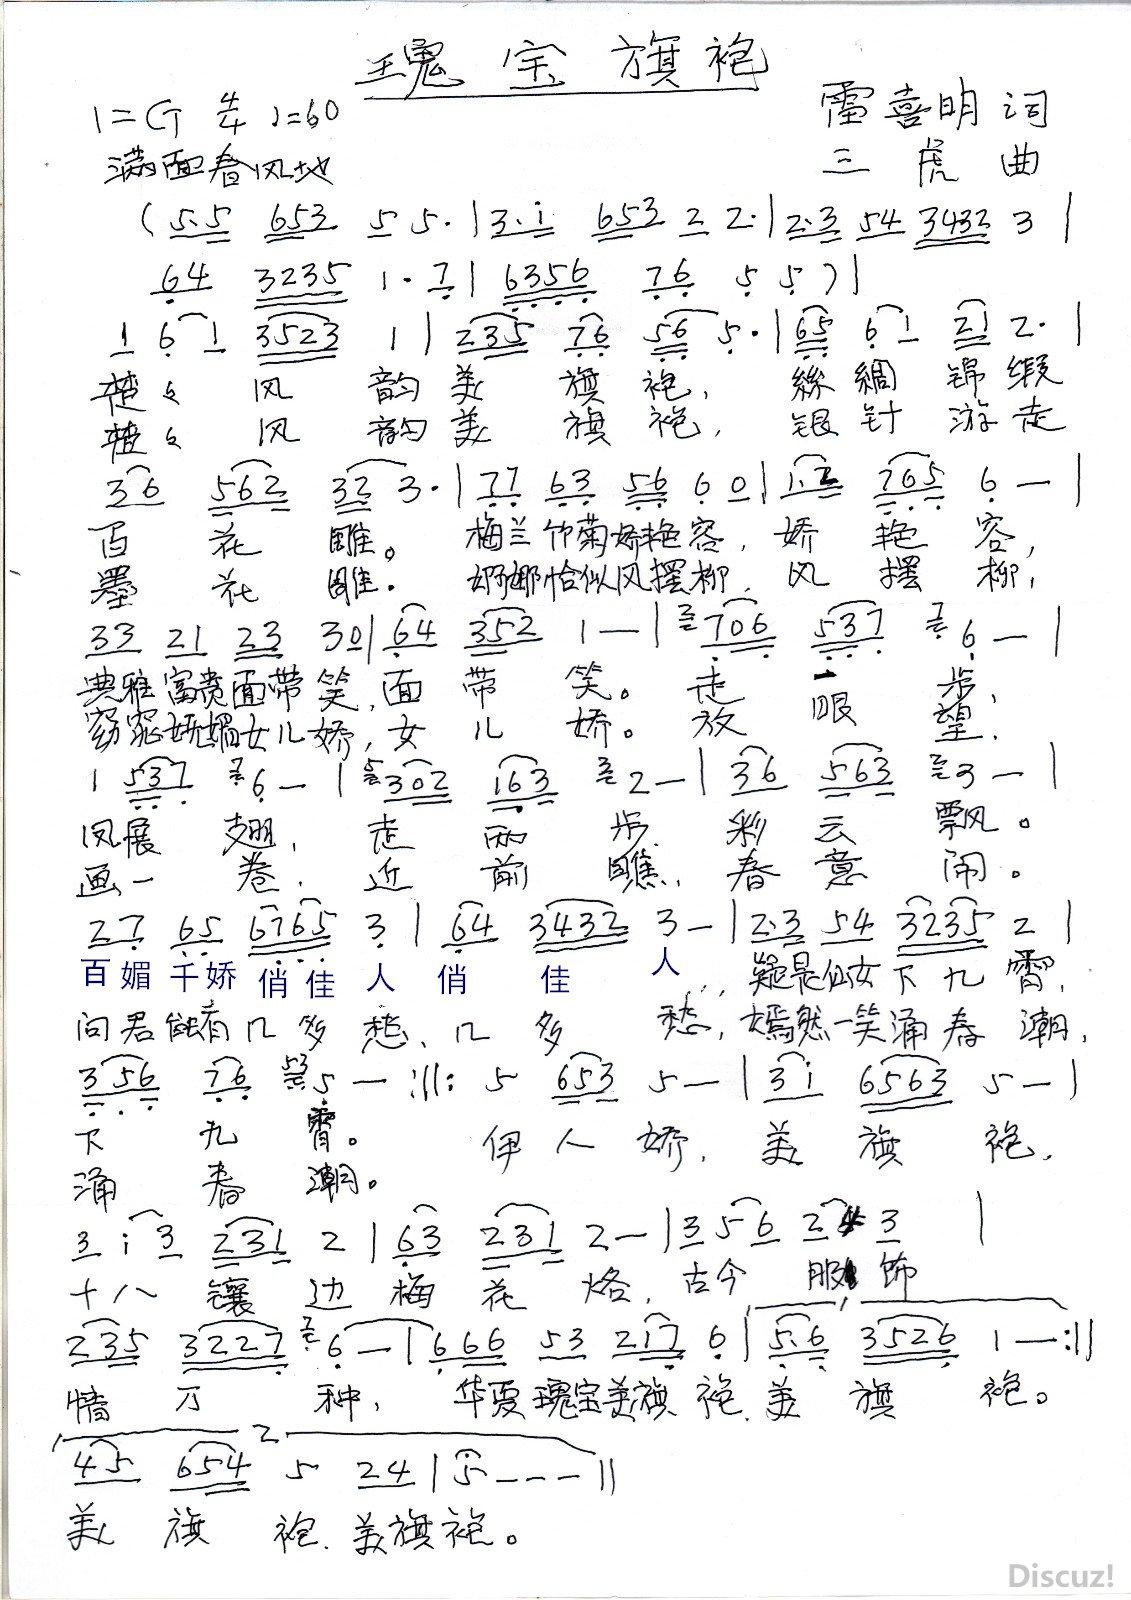 瑰宝旗袍
1=G 4/4 ♩=60 雷喜明 词
满面春风地 三虎 曲
(5·5 653 5 5·|3·i 653 2 2·|2·3 54 3432 3|
64 3235 1·7|6356 76 5 5 7)|
1 6 1 3523 1|235 76 56 5·|65 6 1 21 2·|
楚楚风韵美旗袍, 丝绸锦缎
楚楚风韵美旗袍, 银针游走
36 562 32 3·|77 63 56 6 0|1·2 765 6 —|
百花雕。 梅兰竹菊娇艳容, 娇艳容,
墨花雕. 婀娜恰似风摆柳, 风摆柳,
33 21 23 30|64 352 1 —|706 537 6 —|
典雅富贵面带笑, 面带笑。走一步,
窈窕妩媚女儿娇, 女儿娇。放眼望,
1 537 6 —|302 163 2 —|36 563 3 —|
凤展翅, 走两步 彩云飘。
画一卷, 近前瞧, 春意闹。
27 65 6765 3|64 3432 3 —|2·3 54 3235 2|
百媚千娇俏佳人俏佳人, 疑是仙女下九霄,
问君能有几多愁、几多愁, 嫣然一笑涌春潮,
356 76 5 — :||: 5 653 5 —|3 i 6563 5 —|
下九霄。 伊人娇, 美旗袍,
涌春潮。
3 i 3 231 2|63 231 2 —|3 5 6 2 3|
十八镶边梅花烙, 古今服饰
235 3227 6 —|666 53 217 6|5·6 3526 1 — :||
情万种, 华夏瑰宝美旗袍, 美旗袍。
45 654 5 24|5 - - -||
美旗袍, 美旗袍。
Discuz!